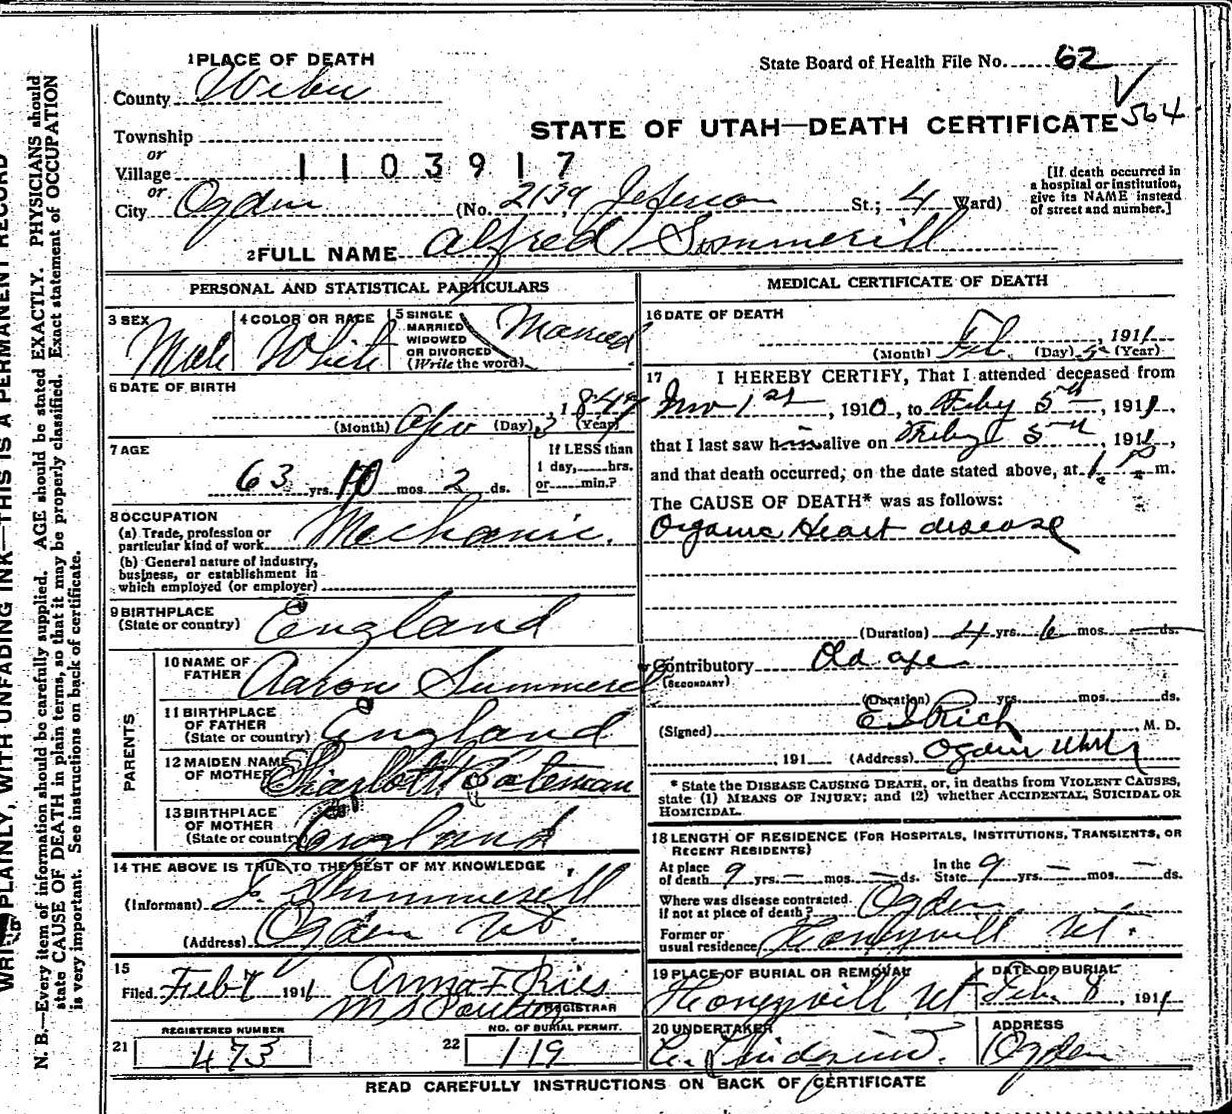 1 PLACE OF DEATH
State Board of Health File No. 62
County Weber
564
STATE OF UTAH—DEATH CERTIFICATE
Township
or
Village
1103917
or
City Ogden (No. 2139 Jefferson St.; 4 Ward)
[If death occurred in
a hospital or institution,
give its NAME instead
of street and number.]
2 FULL NAME Alfred Summerill
PERSONAL AND STATISTICAL PARTICULARS
3 SEX
Male
4 COLOR OR RACE
White
5 SINGLE
MARRIED
WIDOWED
OR DIVORCED
(Write the word)
Married
6 DATE OF BIRTH
Apr 3, 1847
(Month) (Day) (Year)
7 AGE
63 yrs. 10 mos. 2 ds.
If LESS than
1 day, hrs.
or min.?
8 OCCUPATION
(a) Trade, profession or
particular kind of work Mechanic.
(b) General nature of industry,
business, or establishment in
which employed (or employer)
9 BIRTHPLACE
(State or country) England
PARENTS
10 NAME OF
FATHER Aaron Summerill
11 BIRTHPLACE
OF FATHER
(State or country) England
12 MAIDEN NAME
OF MOTHER Charlotte Bateman
13 BIRTHPLACE
OF MOTHER
(State or country) England
14 THE ABOVE IS TRUE TO THE BEST OF MY KNOWLEDGE
(Informant) Summerill
(Address) Ogden Ut.
15
Filed Feb 7 1911 Anna F Ries
REGISTRAR
REGISTERED NUMBER
21 473
NO. OF BURIAL PERMIT.
22 119
MEDICAL CERTIFICATE OF DEATH
16 DATE OF DEATH
Feb. 5, 1911
(Month) (Day) (Year)
17 I HEREBY CERTIFY, That I attended deceased from
Nov 1st, 1910, to Feby 5th, 1911,
that I last saw him alive on Feby 5th, 1911,
and that death occurred, on the date stated above, at 1 P m.
The CAUSE OF DEATH* was as follows:
Organic Heart disease
(Duration) 4 yrs. 6 mos. — ds.
Contributory Old age
(SECONDARY)
(Duration) yrs. mos. ds.
(Signed) E I Rich M. D.
191 (Address) Ogden Utah
* State the DISEASE CAUSING DEATH, or, in deaths from VIOLENT CAUSES,
state (1) MEANS OF INJURY; and (2) whether ACCIDENTAL, SUICIDAL OR
HOMICIDAL.
18 LENGTH OF RESIDENCE (FOR HOSPITALS, INSTITUTIONS, TRANSIENTS, OR
RECENT RESIDENTS)
At place
of death 9 yrs. — mos. — ds.
In the
State 9 yrs. — mos. — ds.
Where was disease contracted
if not at place of death? Ogden
Former or
usual residence Honeyvill Ut.
19 PLACE OF BURIAL OR REMOVAL
Honeyvill Ut
DATE OF BURIAL
Feb. 8, 1911
20 UNDERTAKER
ADDRESS
Ogden
READ CAREFULLY INSTRUCTIONS ON BACK OF CERTIFICATE
WRITE PLAINLY, WITH UNFADING INK—THIS IS A PERMANENT RECORD
N. B.—Every item of information should be carefully supplied. AGE should be stated EXACTLY. PHYSICIANS should
state CAUSE OF DEATH in plain terms, so that it may be properly classified. Exact statement of OCCUPATION
is very important. See instructions on back of certificate.